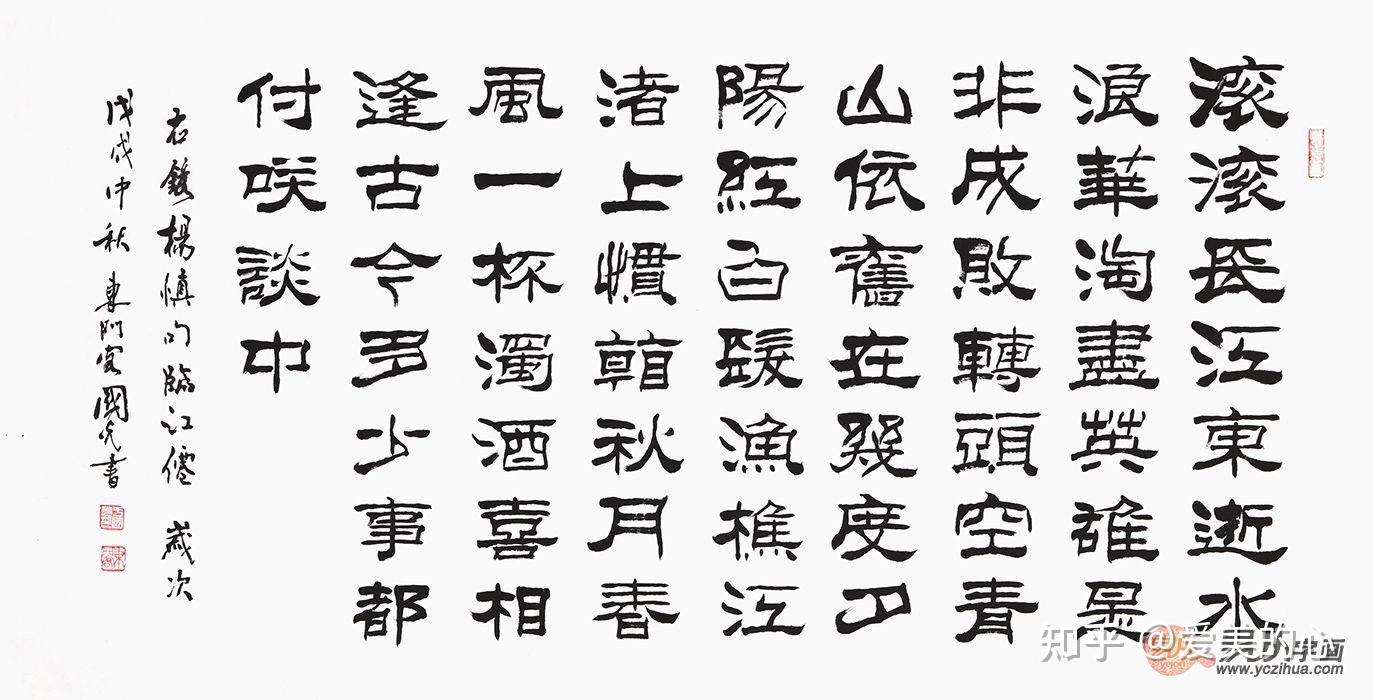 滚滚長江東逝水
浪華淘盡英雄是
非成敗轉頭空青
山依舊在幾度夕
陽紅白髮漁樵江
渚上慣看秋月春
風一杯濁酒喜相
逢古今多少事都
付咲談中
右錄楊慎句臨江僊 歲次
戊戌中秋 東門客國光書
知乎 @爱美的心
字画
www.yczihua.com